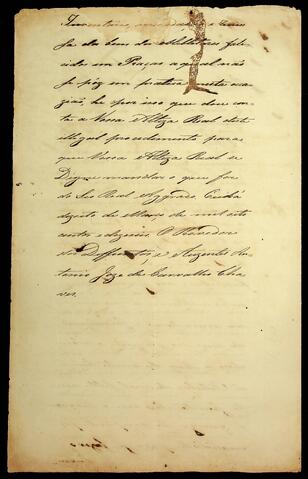 Inventario, arrecadação e
sa dos bens dos Militares fale
cidos em Praças a qual não
se poz em pratica nesta oca
zião, he por isso que dou con
ta a Vossa Alteza Real deste
illegal procedimento para
que Vossa Alteza Real se
Digne mandar o que for
do Seo Real Agrado. Cuiabá
dezoito de Março de mil oito
centos e dezeseis. O Provedor
dos Deffuntos, e Auzentes An
tonio Joze de Carvalho Cha
ves.